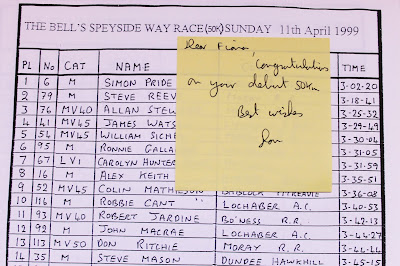 THE BELL'S SPEYSIDE WAY RACE (50K) SUNDAY 11th April 1999
PL No CAT NAME TIME
1 6 M SIMON PRIDE 3-02-20
2 79 M STEVE REEV 3-18-41
3 76 MV40 ALLAN STEW 3-25-32
4 41 MV45 JAMES WATS 3-29-49
5 54 MV45 WILLIAM SICHE 3-30-04
6 95 M RONNIE GALLA 3-31-05
7 67 LV1 CAROLYN HUNTER 3-31-59
8 16 M ALEX KEITH 3-35-51
9 52 MV45 COLIN MATHIESON 3-36-08
10 116 M ROBBIE CANT LOCHABER A.C. 3-40-53
11 93 MV40 ROBERT JARDINE BO'NESS R.R. 3-42-13
12 92 M JOHN MACRAE LOCHABER A.C. 3-44-27
13 113 MV50 DON RITCHIE MORAY R.R. 3-44-44
14 35 M STEVE MASON DUNDEE HAWKHILL 3-45-15
Dear Fiona,
Congratulations
on your debut 50km
Best wishes